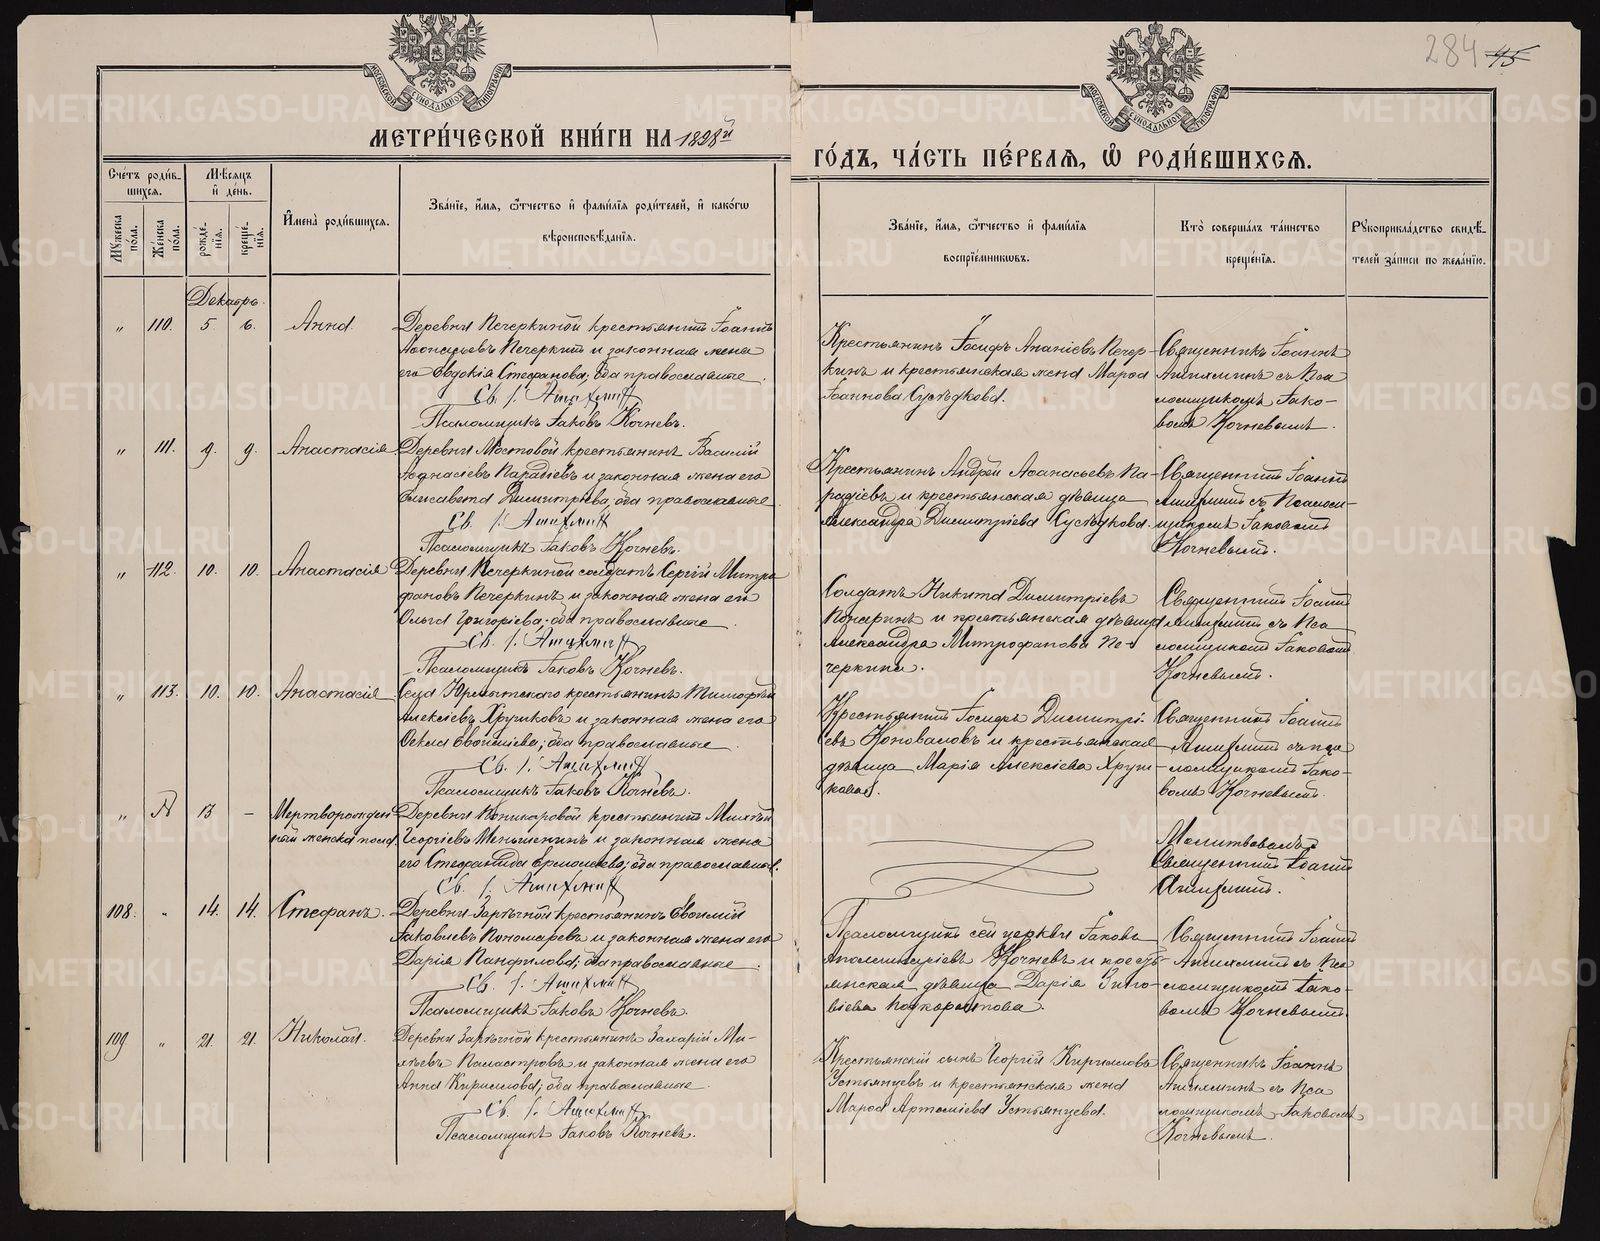 284 45
МОСКОВСКОЙ СѴНОДАЛЬНОЙ ТИПОГРАФІИ
МОСКОВСКОЙ СѴНОДАЛЬНОЙ ТИПОГРАФІИ
МЕТРИ́ЧЕСКОЙ КНИ́ГИ НА 1898й
ГО́ДЪ, ЧА́СТЬ ПЕ́РВАѦ, Ѡ҆ РОДИ́ВШИХСѦ.
Сче́тъ роди́в-
шихся.
Мѣ́сяцъ
и҆ де́нь.
Мꙋ́жеска по́ла.
Же́нска по́ла.
рожде́-
нїя.
креще́-
нїя.
И҆мена̀ роди́вшихся.
Зва́нїе, и҆́мя, ѻ҆́тчество и҆ фамѝлїя роди́телей, и҆ како́гѡ
вѣроисповѣ́данїя.
Зва́нїе, и҆́мя, ѻ҆́тчество и҆ фамѝлїя
воспрїе́мниковъ.
Кто̀ соверша́лъ та́инство
креще́нїя.
Рꙋкоприкла́дство свидѣ́-
телей за́писи по жела́нїю.
Декабрь.
„ 110. 5 6. Анна.
Деревни Печеркиной крестьянинъ Іоаннъ
Аѳонасьевъ Печеркинъ и законная жена
его Евдокія Стефанова; оба православные.
Св. І. Ашихмин
Псаломщикъ Іаковъ Кочневъ.
Крестьянинъ Іосифъ Ананіевъ Печер-
кинъ и крестьянская жена Марѳа
Іоаннова Сусѣдкова.
Священникъ Іоаннъ
Ашихминъ съ Пса
ломщикомъ Іако-
вомъ Кочневымъ.
„ 111. 9. 9. Анастасія
Деревни Мостовой крестьянинъ Василій
Аѳанасіевъ Парадіевъ и законная жена его
Елисавета Димитріева, оба православные
Св. І. Ашихмин
Псаломщикъ Іаковъ Кочневъ.
Крестьянинъ Андрей Аѳанасьевъ Па-
радіевъ и крестьянская дѣвица
Александра Димитріева Сусѣдкова.
Священникъ Іоаннъ
Ашихминъ съ Псалом-
щикомъ Іаковомъ
Кочневымъ.
„ 112. 10. 10. Анастасія
Деревни Печеркиной солдатъ Сергій Митро
фановъ Печеркинъ и законная жена его
Ольга Григоріева; оба православные.
Св. І. Ашихмин
Псаломщикъ Іаковъ Кочневъ.
Солдатъ Никита Димитріевъ
и крестьянская дѣвица
Александра Митрофанова Пе-
черкина.
Священникъ Іоаннъ
Ашихминъ съ Пса
ломщикомъ Іаковомъ
Кочневымъ.
„ 113. 10. 10. Анастасія
Села Юрмытскаго крестьянинъ Тимофей
Алексіевъ Хрушковъ и законная жена его
Ѳекла Евѳиміева; оба православные.
Св. І. Ашихмин
Псаломщикъ Іаковъ Кочневъ.
Крестьянинъ Іосифъ Димитрі-
евъ Коноваловъ и крестьянская
дѣвица Марія Алексіева Хруш-
кова.
Священникъ Іоаннъ
Ашихминъ съ пса
ломщикомъ Іако-
вомъ Кочневымъ.
„ 13 – Мертворожден
ный женска пола.
Деревни крестьянинъ
Георгіевъ Меньшенинъ и законная жена
его Стефанида Ермолаева; оба православные.
Св. І. Ашихмин
Молитвовалъ
Священникъ Іоаннъ
Ашихминъ.
108. „ 14. 14. Стефанъ.
Деревни Зарѣчной крестьянинъ Евѳимій
Іаковлевъ Пономаревъ и законная жена его
Дарія Панфилова; оба православные.
Св. І. Ашихмин
Псаломщикъ Іаковъ Кочневъ.
Псаломщикъ сей церкви Іаковъ
Аполлинаріевъ Кочневъ и кресть
янская дѣвица Дарія Зино-
віева Поскармопова.
Священникъ Іоаннъ
Ашихминъ съ Пса
ломщикомъ Іако-
вомъ Кочневымъ.
109 „ 21. 21. Николай.
Деревни Зарѣчной крестьянинъ Захарій Ми-
и законная жена его
Анна Кириллова; оба православные.
Св. І. Ашихмин
Псаломщикъ Іаковъ Кочневъ.
Крестьянскій сынъ Георгій Кирилловъ
Устьянцевъ и крестьянская жена
Марѳа Артеміева Устьянцева.
Священникъ Іоаннъ
Ашихминъ съ Пса
ломщикомъ Іаковомъ
Кочневымъ.
METRIKI.GASO-URAL.RU